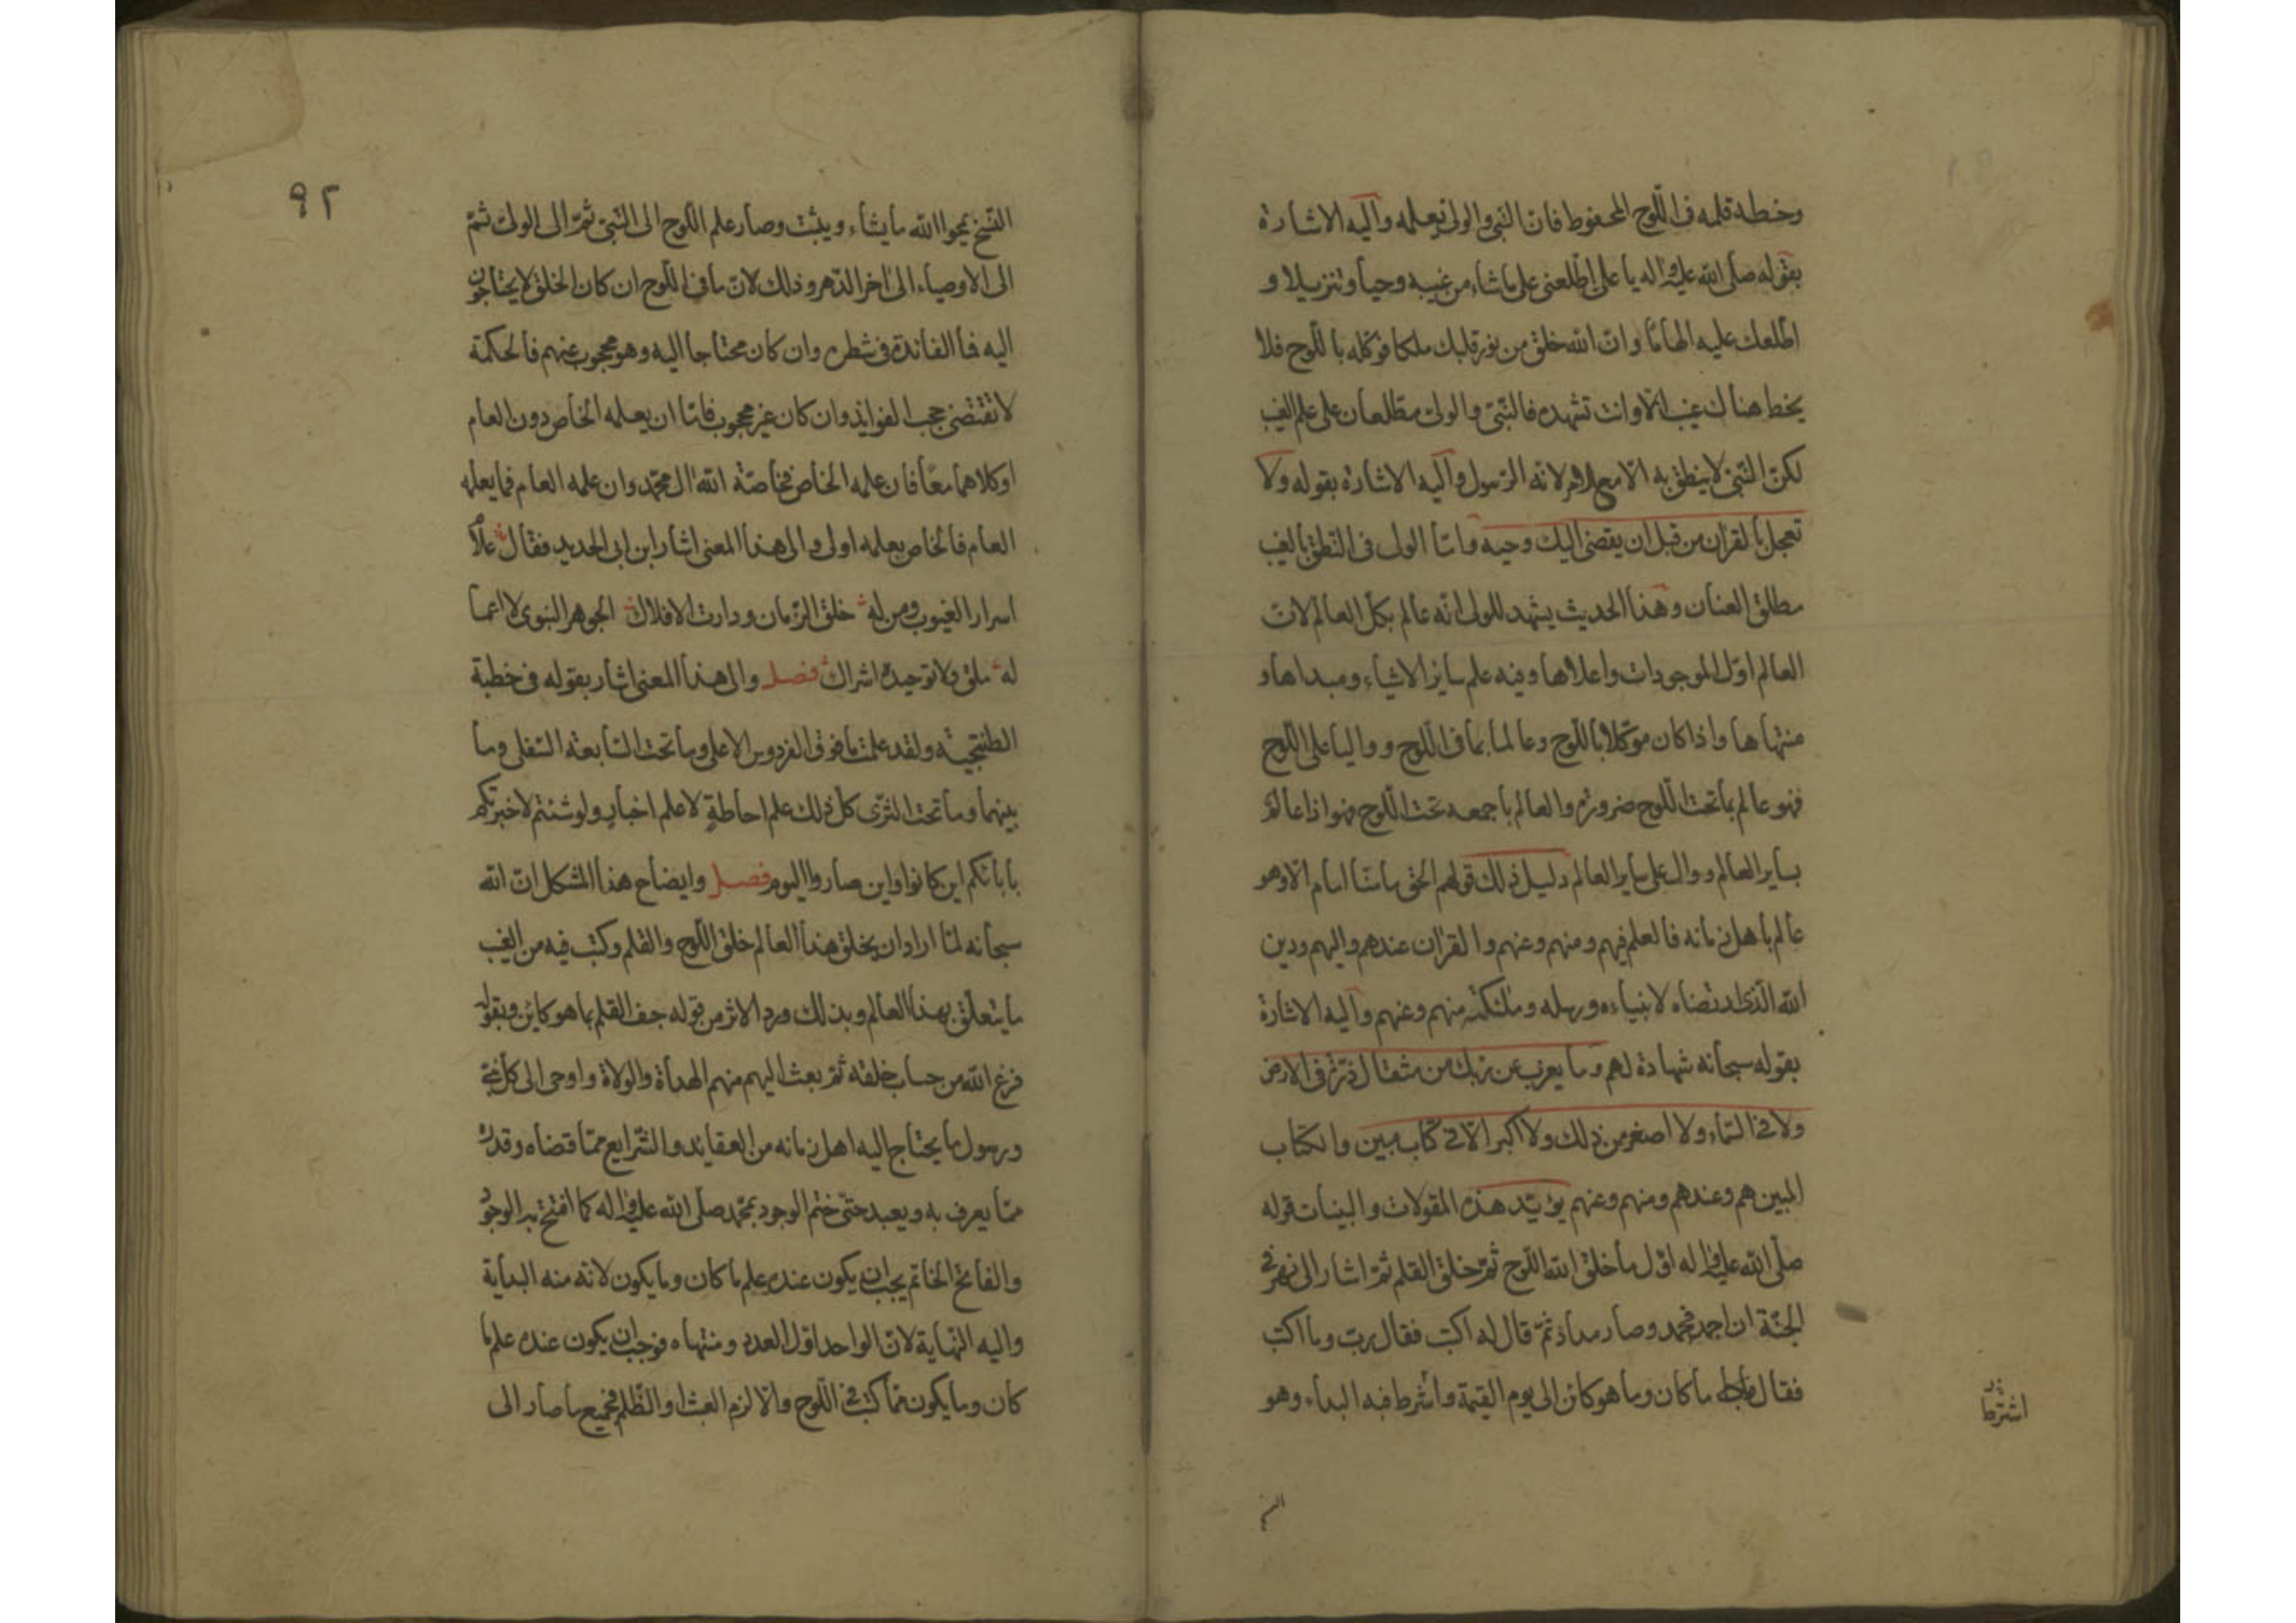 وخطه قلمه فى اللّوح المحفوظ فانّ النبى والولى يعلمه واليه الاشارة
بقوله صلى الله عليه واله يا على اطّلعنى على ما شاء من غيبه وحيا وتنزيلا و
اطّلعك عليه الهامًا وانّ الله خلق من نور قلبك ملكا فوكّله باللّوح فلا
يخط هناك غيب الّا وانت تشهده فالنّبىّ والولى مطّلعان على علم الغيب
لكنّ النّبىّ لا ينطق به الّا مع الامر لانّه الرّسول واليه الاشارة بقوله ولا
تعجل بالقران من قبل ان يقضى اليك وحيه وامّا الولى فى النّطق بالغيب
مطلق العنان وهذا الحديث يشهد للولى انّه عالم بكل العالم لانّ
العالم اوّل الموجودات واعلاها وفيه علم ساير الاشياء ومبداها و
منتهاها واذا كان موكّلا باللّوح وعالما بما فى اللّوح وواليا على اللّوح
فهو عالم بما تحت اللّوح ضرورة والعالم باجمعه تحت اللّوح فهو اذا عالم
بساير العالم ووال على ساير العالم دليل ذلك قولهم الحق ما منّا امام الّا وهو
عالم باهل زمانه فالعلم فيهم ومنهم وعنهم والقران عندهم واليهم ودين
الله الّذى ارتضاه لانبياءه ورسله وملئكته منهم وعنهم واليه الاشارة
بقوله سبحانه شهادة لهم وما يعزب عن ربّك من مثقال ذرّة فى الارض
ولا فى السّماء ولا اصغر من ذلك ولا اكبر الّا فى كتاب مبين والكتاب
المبين هم وعندهم ومنهم وعنهم يؤيّد هذه المقولات والبينات قوله
صلّى الله عليه واله اوّل ما خلق الله اللّوح ثمّ خلق القلم ثمّ اشار الى نهر فى
الجنّة ان اجمد فجمد وصار مدادا ثمّ قال له اكتب فقال ربّ وما اكتب
فقال ما كان وما هو كائن الى يوم القيمة واشرط فيه البداء وهو
اشترط
النسخ
٩٢
النّسخ يمحوا الله ما يشاء ويثبت وصار علم اللّوح الى النّبىّ ثمّ الى الولىّ ثمّ
الى الاوصياء الى اخر الدّهر وذلك لانّ ما فى اللّوح ان كان الخلق لا يحتاجون
اليه فما الفائدة فى سطره وان كان محتاجا اليه وهو محجوب عنهم فالحكمة
لا تقتضى حجب الفوايد وان كان غير محجوب فامّا ان يعلمه الخاص دون العام
اوكلاهما معًا فان علمه الخاص فخاصّة الله ال محمّد وان علمه العام فما يعلمه
العام فالخاص بعلمه اولى والى هذا المعنى اشار ابن ابى الحديد فقال علّام
اسرار الغيوب ومن له خلق الزّمان ودارت الافلاك الجوهر النبوى لا اعما
له ملق ولا توحيده اشراك فصل والى هذا المعنى اشار بقوله فى خطبة
الطتنجية ولقد علمت ما فوق الفردوس الاعلى وما تحت السّابعة السّفلى وما
بينهما وما تحت الثرّى كلّ ذلك علم احاطةٍ لا علم اخبار ولو شئتم لاخبرتكم
بابائكم اين كانوا واين صاروا اليوم فصل وايضاح هذا المشكل انّ الله
سبحانه لمّا اراد ان يخلق هذا العالم خلق اللّوح والقلم وكتب فيه من الغيب
ما يتعلّق بهذا العالم وبذلك ورد الاثر من قوله جف القلم بما هو كاين وبقوله
فرغ الله من حساب خلقه ثمّ بعث اليهم منهم الهداة والولاة واوحى الى كلّ نبىّ
ورسول ما يحتاج اليه اهل زمانه من العقايد والشّرايع ممّا قضاه وقدره
ممّا يعرف به ويعبد حتّى ختم الوجود بمحمّد صلّى الله عليه واله كما افتتح به الوجود
والفاتح الخاتم يجب ان يكون عنده علم ما كان وما يكون لانّه منه البداية
واليه النّهاية لانّ الواحد اوّل العدد ومنتهاه فوجب ان يكون عنده علم ما
كان وما يكون ممّا كتب فى اللّوح والّا لزم العبث او الظّلم فجميع ما صار الى